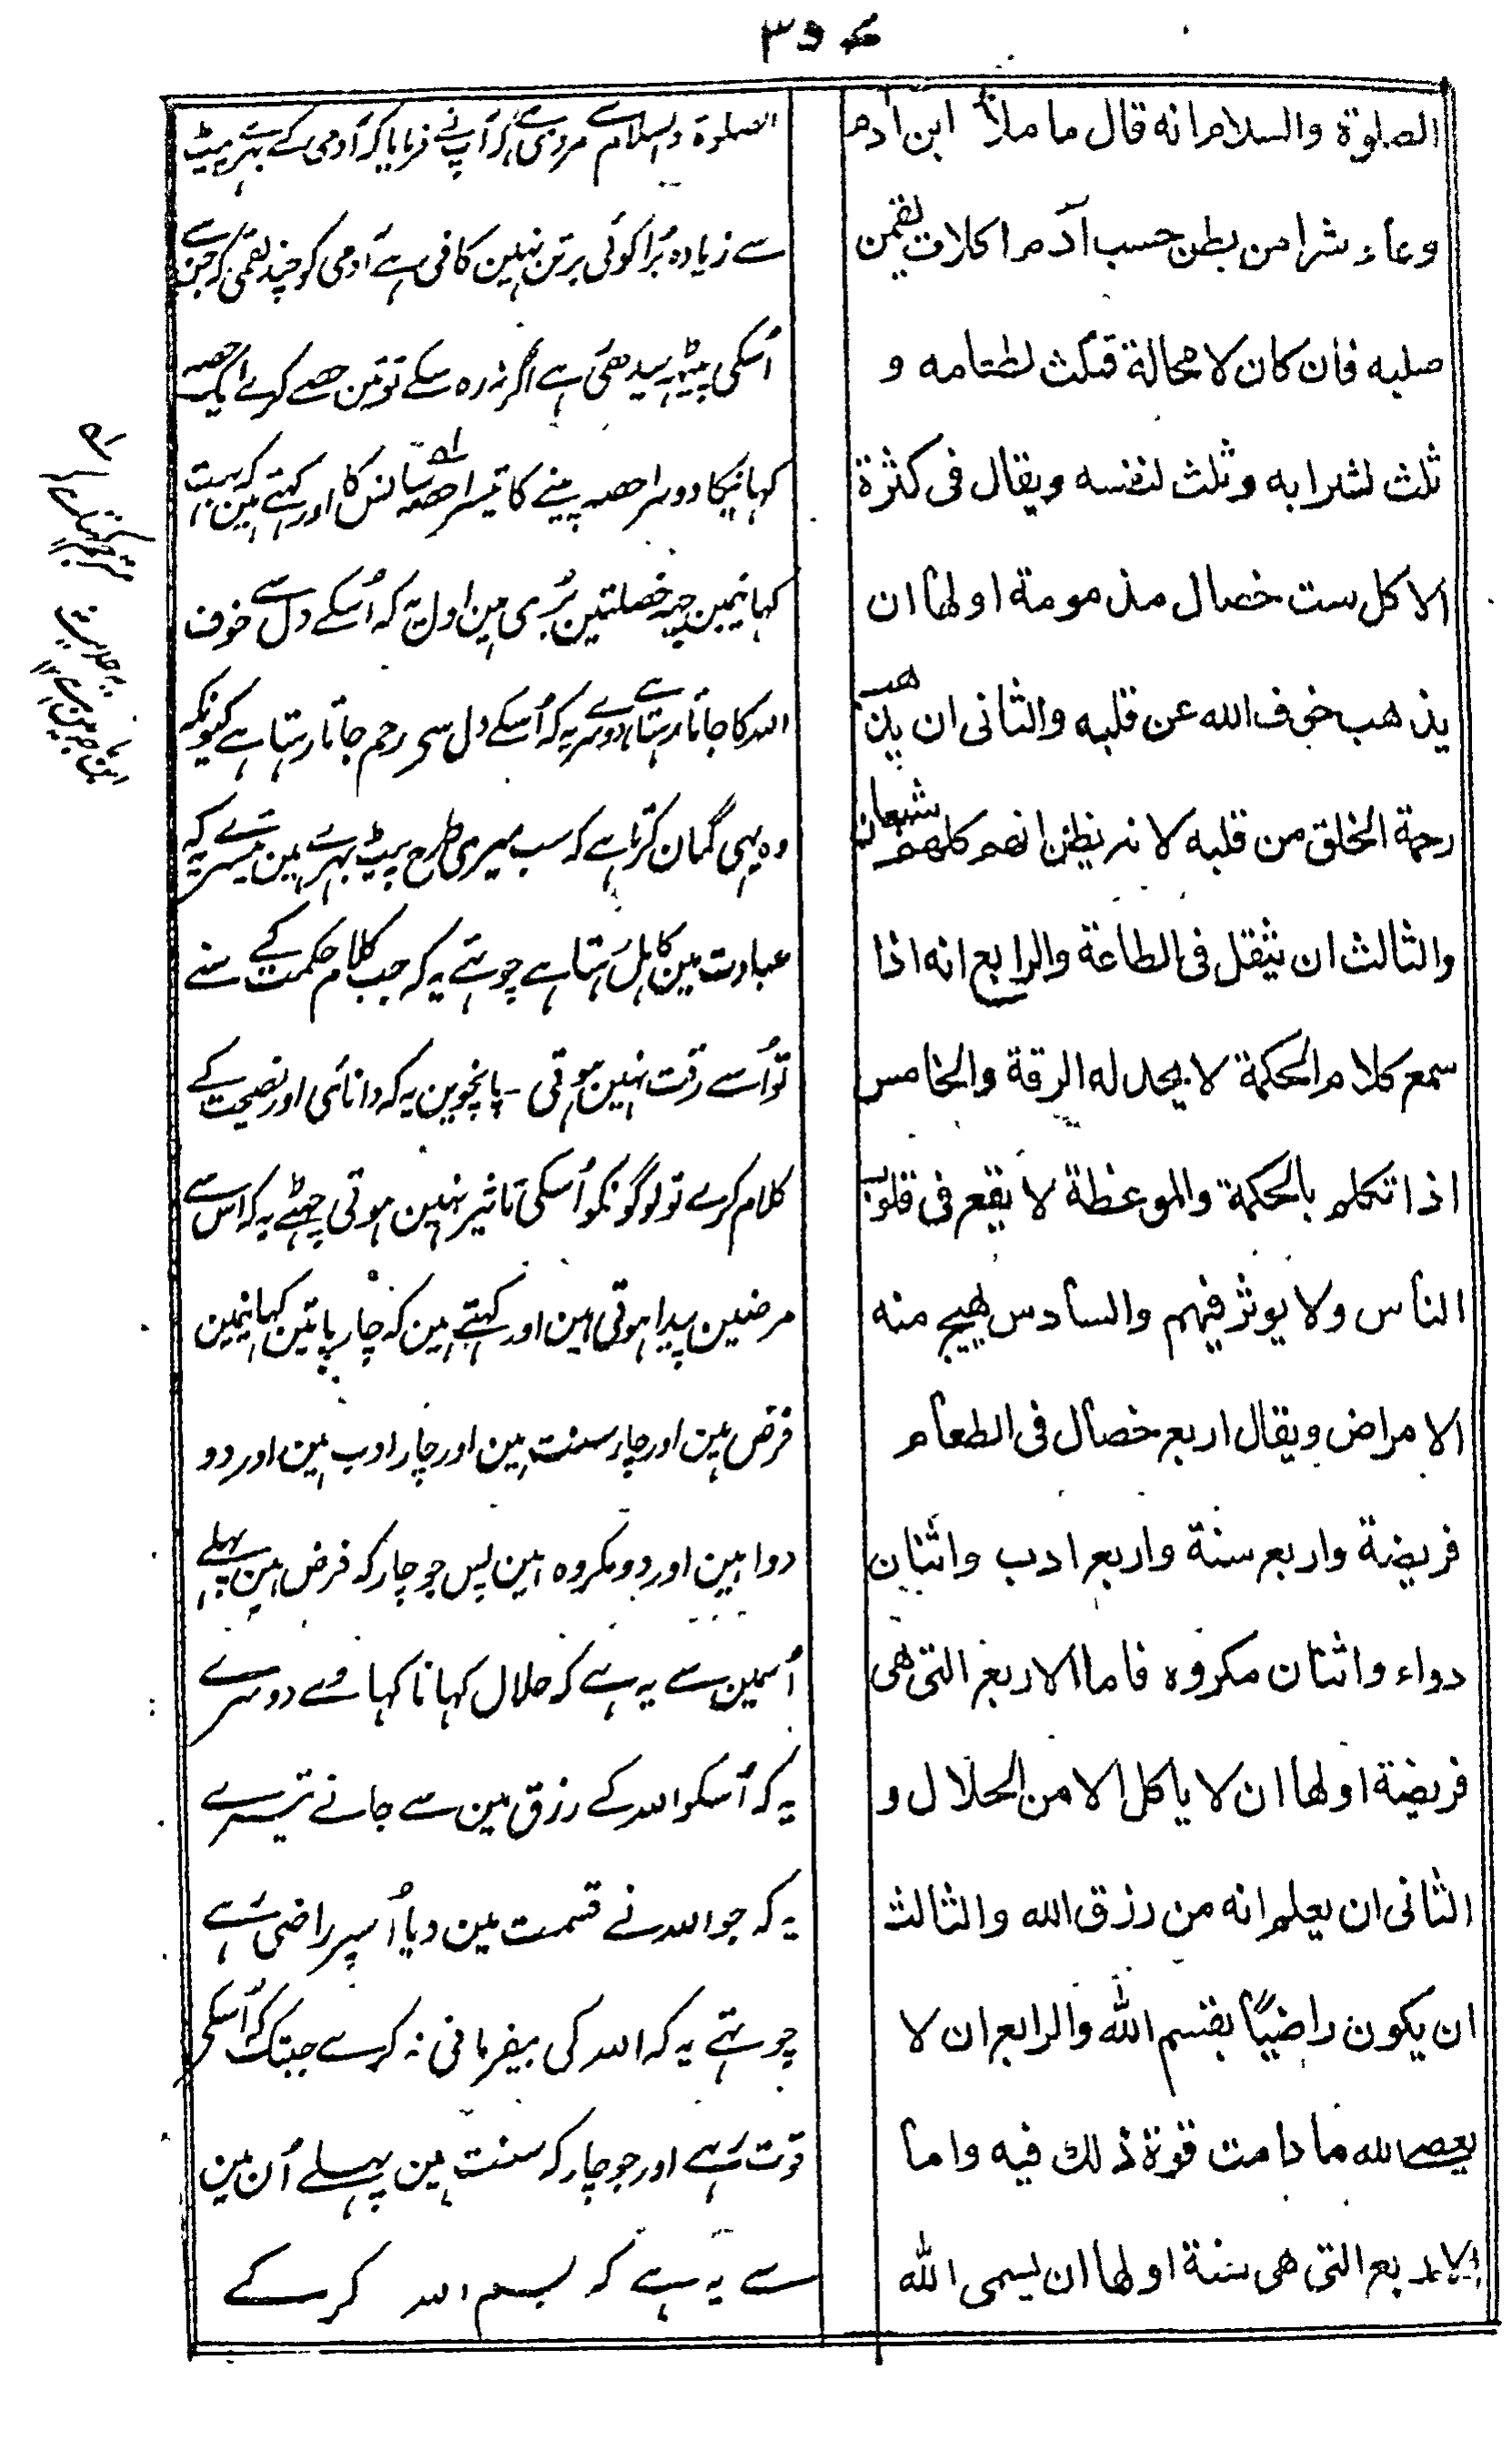 الصلوة والسلام انه قال ما ملأ ابن ادم
وعاء شرا من بطن حسب آدم اكلات يقمن
صلبه فان كان لا محالة فثلث لطعامه و
ثلث لشرابه وثلث لنفسه ويقال فى كثرة
الاكل ست خصال مذمومة اولها ان
يذهب خوف الله عن قلبه والثانى ان يذهب
رحمة الخلق من قلبه لانه يظن انهم كلهم شبعان
والثالث ان يثقل فى الطاعة والرابع انه اذا
سمع كلام الحكمة لا يجد له الرقة والخامس
اذا تكلم بالحكمة والموعظة لا يقع فى قلوب
الناس ولا يوثر فيهم والسادس يهيج منه
الامراض ويقال اربع خصال فى الطعام
فريضة واربع سنة واربع ادب واثنان
دواء واثنان مكروه فاما الاربع التى هى
فريضة اولها ان لا ياكل الا من الحلال و
الثانى ان يعلم انه من رزق الله والثالث
ان يكون راضيًا بقسم الله والرابع ان لا
يعصى الله ما دامت قوة ذلك فيه واما
الاربع التى هى سنة اولها ان يسمى الله
الصلوة والسلام سے مروی ہے کہ آپ نے فرمایا کہ آدمی کے بہرے پیٹ
سے زیادہ بُرا کوئی برتن نہین کافی ہے آدمی کو چند لقمی کہ جن سے
اُسکی پیٹہ سیدھی ہے اگر نہ رہ سکے تو تین حصے کرے ایک حصہ
کہانیکا دوسرا حصہ پینے کا تیسرا حصہ سانس کا اور کہتے ہین کہ بہت
کہانیمین چہہ خصلتین بُری ہین اول یہ کہ اُسکے دل سے خوف
اللہ کا جاتا رہتا ہے دوسرے یہ کہ اُسکے دل سی رحم جاتا رہتا ہے کیونکہ
وہ یہی گمان کرتا ہے کہ سب میری طرح پیٹ بہرے ہین تیسرے یہ کہ
عبادت مین کاہل رہتا ہے چوتہے یہ کہ جب کلام حکمت کے سنے
تو اُسے رقت نہین ہوتی - پانچوین یہ کہ دانائی اور نصیحت کے
کلام کرے تو لوگونکو اُسکی تاثیر نہین ہوتی چہٹے یہ کہ اس سے
مرضین پیدا ہوتی ہین اور کہتے ہین کہ چار باتین کہانیمین
فرض ہین اور چار سنت ہین اور چار ادب ہین اور دو
دوا ہین اور دو مکروہ ہین پس جو چار کہ فرض ہین پہلے
اُسمین سے یہ ہے کہ حلال کہانا کہاوے دوسرے
یہ کہ اُسکو اللہ کے رزق مین سے جانے تیسرے
یہ کہ جو اللہ نے قسمت مین دیا اُسپر راضی رہے
چوتہے یہ کہ اللہ کی بیفرمانی نہ کرے جبتک کہ اُسکی
قوت رہے اور جو چار کہ سنت ہین پہلے اُن مین
سے یہ ہے کہ بسم اللہ کرکے